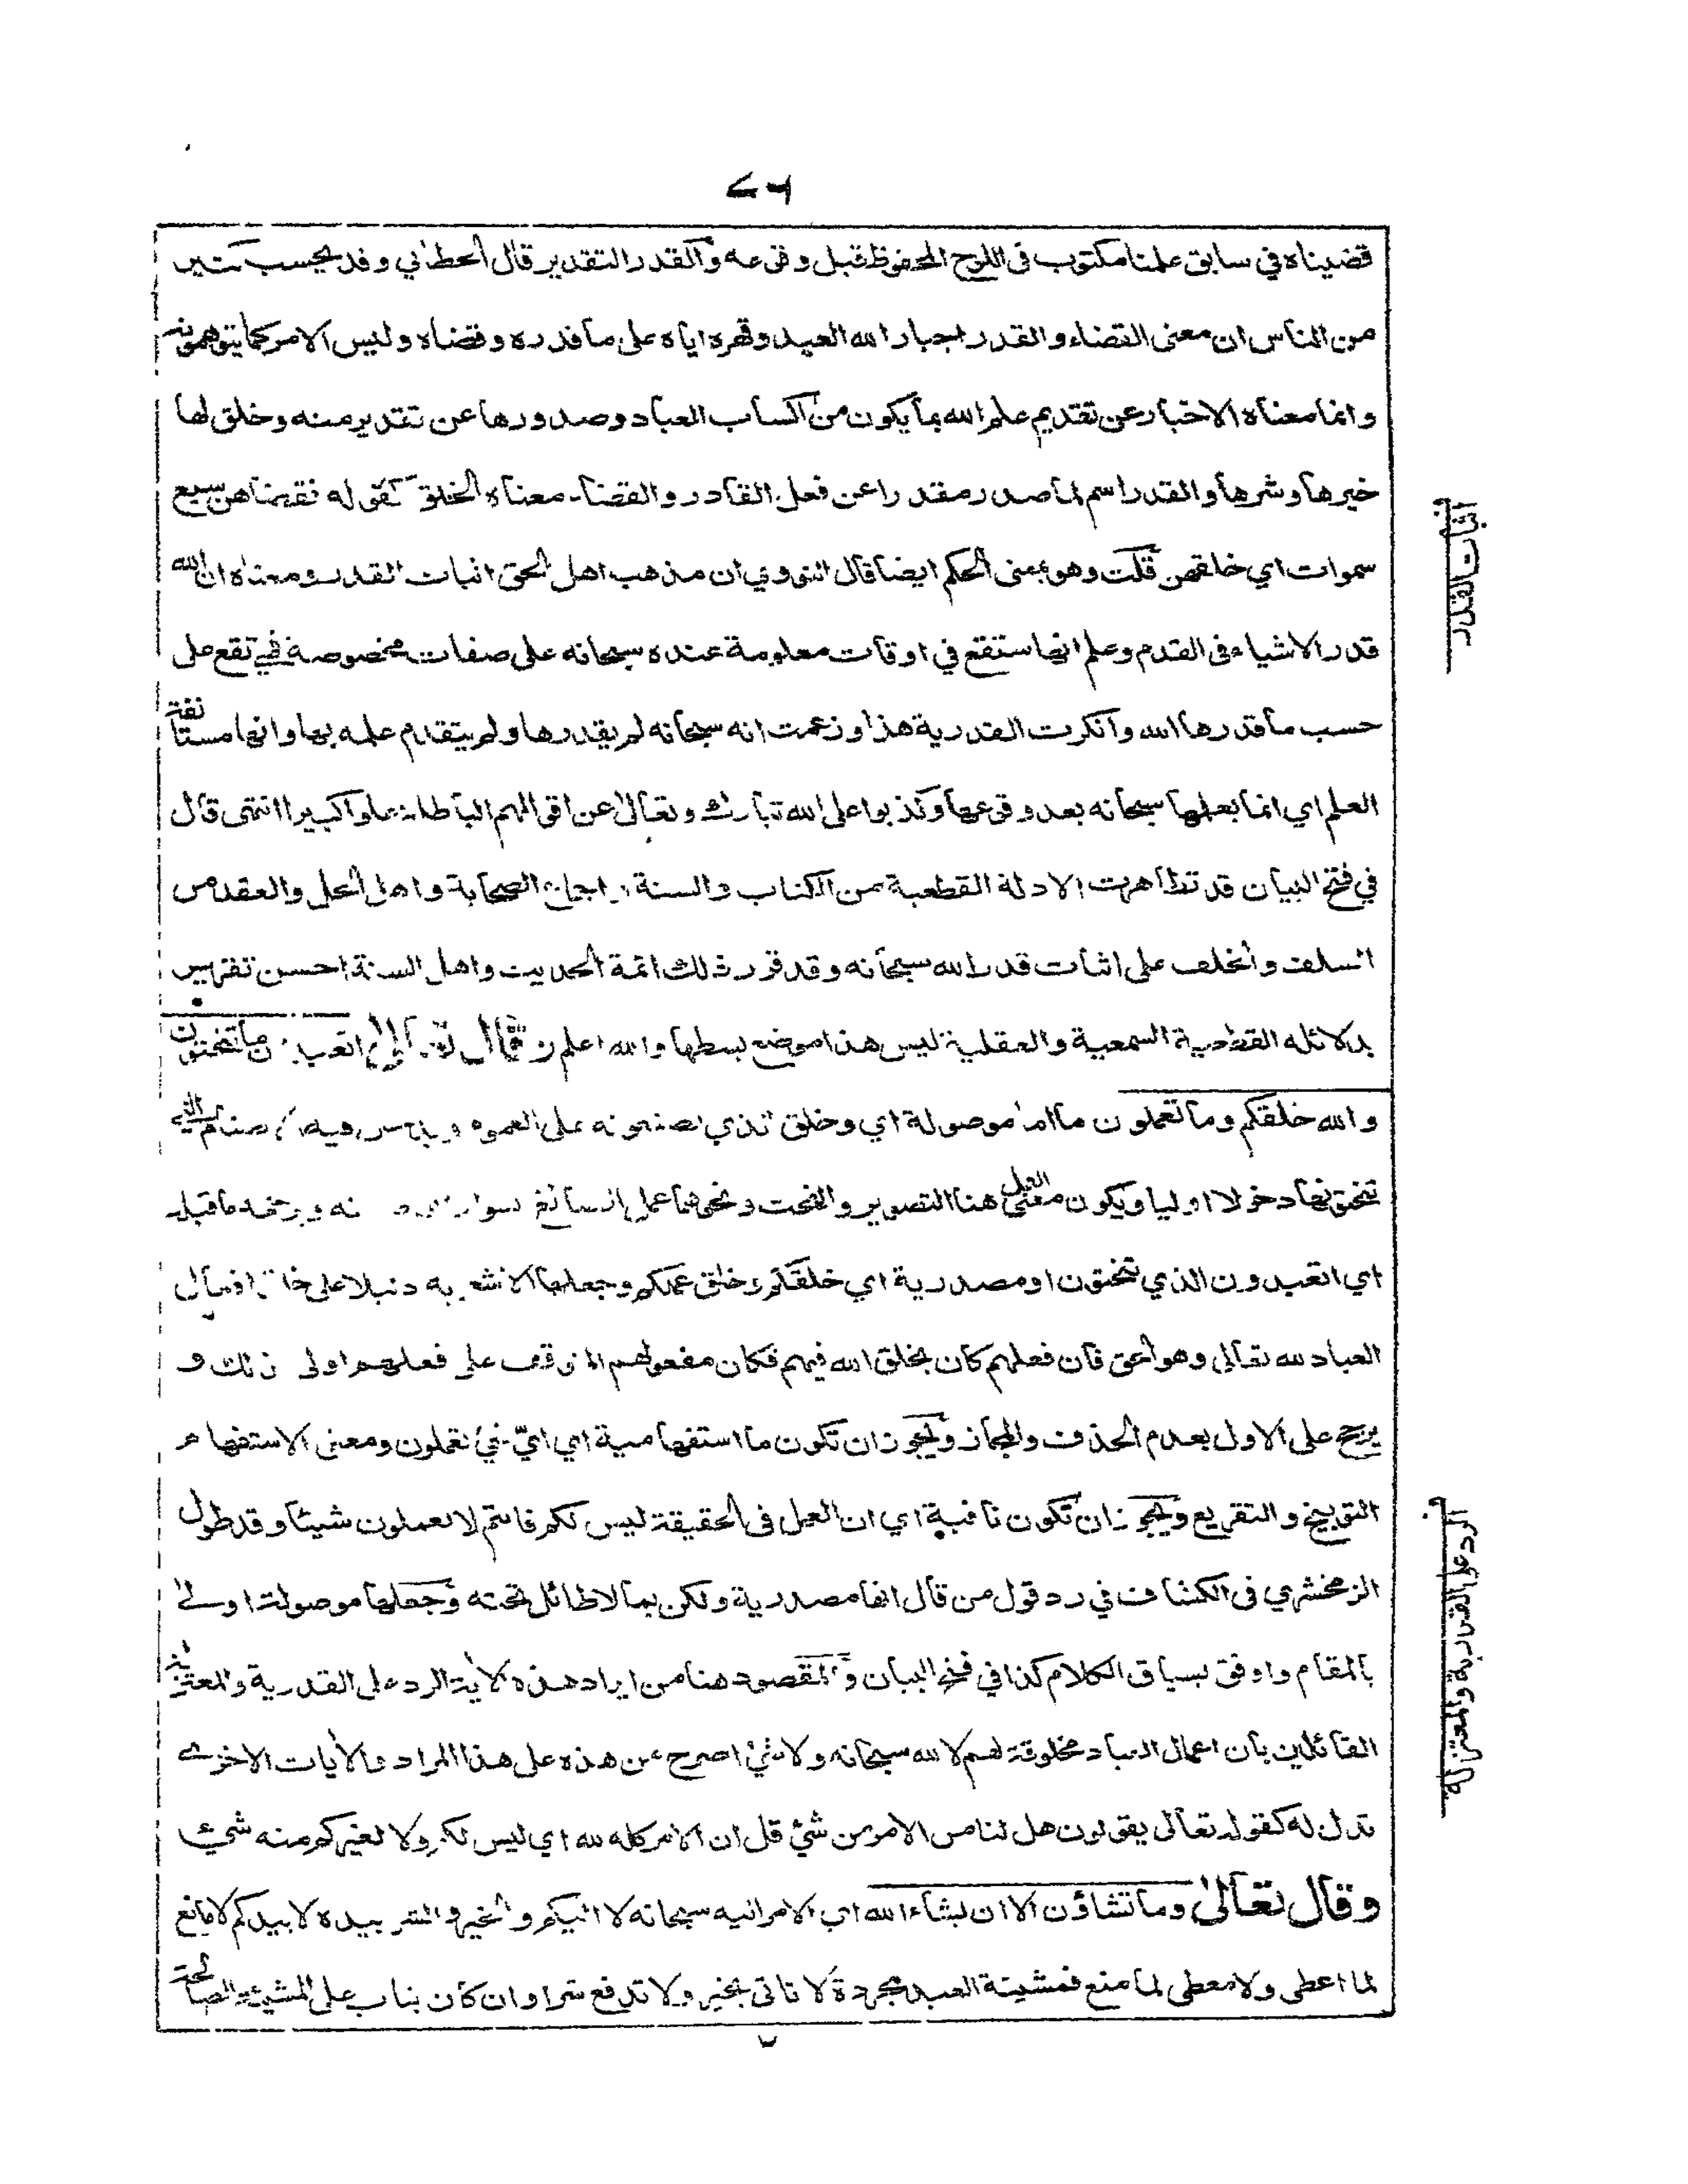 قضيناه في سابق علمنا مكتوب فى اللوح المحفوظ قبل وقوعه والقدر التقدير قال الخطابي وقد يحسب كثير
من الناس ان معنى القضاء والقدر اجبار الله العبد وقهره اياه على ما قدره وقضاه وليس الامر كما يتوهمونه
وانما معناه الاخبار عن تقديم علم الله بما يكون من اكساب العباد وصدورها عن تقدير منه وخلق لها
خيرها وشرها والقدر اسم لما صدر مقدرا عن فعل القادر والقضاء معناه الخلق كقوله فقضاهن سبع
سموات اي خلقهن قلت وهو بمعنى الحكم ايضا قال النووي ان مذهب اهل الحق اثبات القدر ومعناه ان الله
قدر الاشياء فى القدم وعلم انها ستقع في اوقات معلومة عنده سبحانه على صفات مخصوصة فهي تقع على
حسب ما قدرها الله وانكرت القدرية هذا وزعمت انه سبحانه لم يقدرها ولم يتقدم علمه بها وانها مستأنفة
العلم اي انما يعلمها سبحانه بعد وقوعها وكذبوا على الله تبارك وتعالى عن اقوالهم الباطلة علوا كبيرا انتهى قال
في فتح البيان قد تظاهرت الادلة القطعية من الكتاب والسنة واجماع الصحابة واهل الحل والعقد من
السلف والخلف على اثبات قدر الله سبحانه وقد قرر ذلك ائمة الحديث واهل السنة احسن تقرير
بدلائله القطعية السمعية والعقلية ليس هذا موضع بسطها والله اعلم وقال تعالى اتعبدون ما تنحتون
والله خلقكم وما تعملون ما اما موصولة اي وخلق الذي تصنعونه على العموم ويدخل فيها الاصنام التي
تنحتونها دخولا اوليا ويكون معنى العمل هنا التصوير والنحت ونحوهما ويرجحه ما قبله
اي اتعبدون الذي تنحتون او مصدرية اي خلقكم وخلق عملكم وجعلها الاشعرية دليلا على خلق افعال
العباد لله تعالى وهو الحق فان فعلهم كان بخلق الله فيهم فكان مفعولهم المتوقف على فعلهم اولى ذلك و
يرجح على الاول بعدم الحذف والمجاز ويجوز ان تكون ما استفهامية اي ايّ شيء تعملون ومعنى الاستفهام
التوبيخ والتقريع ويجوز ان تكون نافية اي ان العمل فى الحقيقة ليس لكم فانتم لا تعملون شيئا وقد طول
الزمخشري فى الكشاف في رد قول من قال انها مصدرية ولكن بما لا طائل تحته وجعلها موصولة اولى
بالمقام واوفق بسياق الكلام كذا في فتح البيان والمقصود هنا من ايراد هذه الاية الرد على القدرية والمعتزلة
القائلين بان اعمال العباد مخلوقة لهم لا لله سبحانه ولا شيء اصرح من هذه على هذا المراد والايات الاخرى
تدل له كقوله تعالى يقولون هل لنا من الامر من شيء قل ان الامر كله لله اي ليس لكم ولا لغيركم منه شيء
وقال تعالى وما تشاؤن الا ان يشاء الله اي الامر اليه سبحانه لا اليكم والخير والشر بيده لا بيدكم لا مانع
لما اعطى ولا معطى لما منع فمشيئة العبد مجردة لا تاتى بخير ولا تدفع شرا وان كان يثاب على المشيئة الصالحة